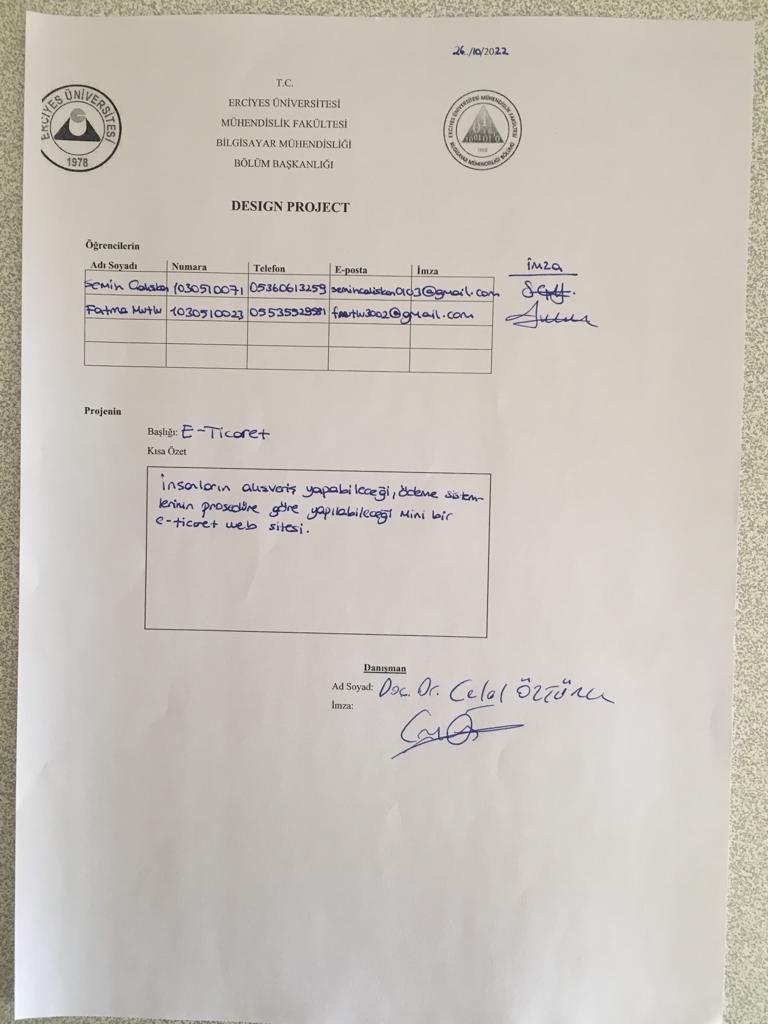 26./10/2022
T.C.
ERCİYES ÜNİVERSİTESİ
MÜHENDİSLİK FAKÜLTESİ
BİLGİSAYAR MÜHENDİSLİĞİ
BÖLÜM BAŞKANLIĞI
ERCİYES ÜNİVERSİTESİ
1978
ERCİYES ÜNİVERSİTESİ MÜHENDİSLİK FAKÜLTESİ
BİLGİSAYAR MÜHENDİSLİĞİ BÖLÜMÜ
DESIGN PROJECT
Öğrencilerin
Adı Soyadı Numara Telefon E-posta İmza İmza
Semin Caliskan 1030510071 05360613259 semincaliskan0103@gmail.com
Fatma Mutlu 1030510023 fmutlu3002@gmail.com
Projenin
Başlığı: E-Ticaret
Kısa Özet
İnsanların alısveriş yapabileceği, ödeme sistem-
lerinin prosedüre göre yapılabileceği mini bir
e-ticaret web sitesi.
Danışman
Ad Soyad: Doç. Dr. Celal ÖZTÜRK
İmza: